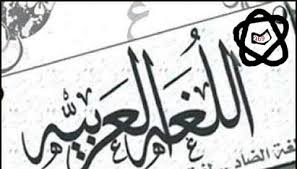 ع
اللغه العربيّه
لغة الضاد